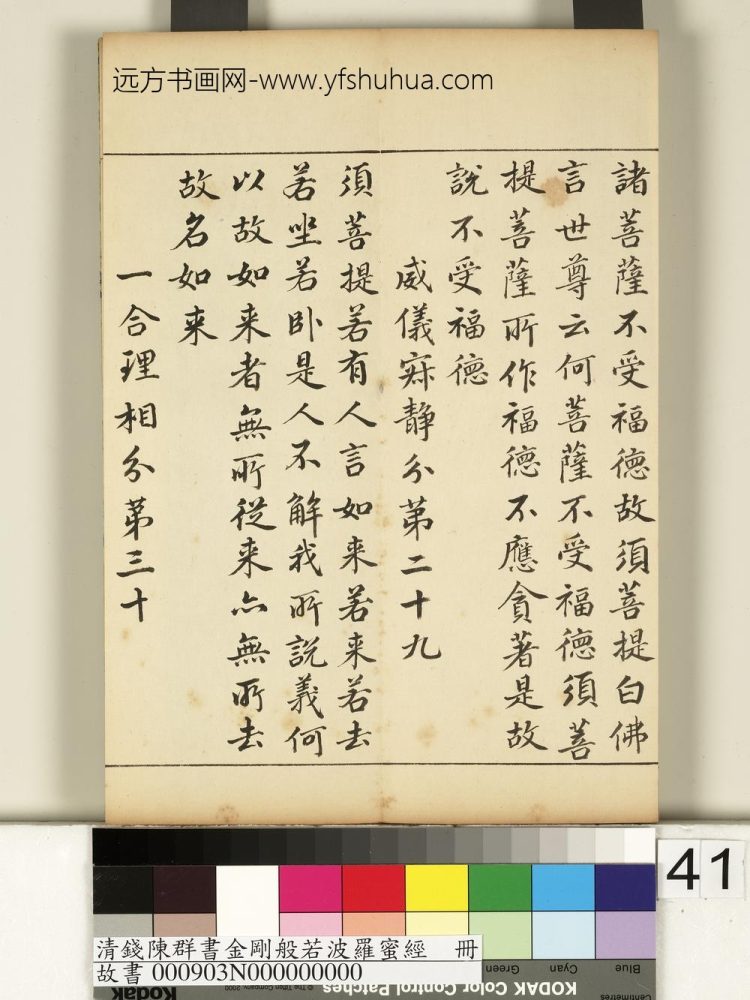 远方书画网-www.yfshuhua.com
諸菩薩不受福德故須菩提白佛
言世尊云何菩薩不受福德須菩
提菩薩所作福德不應貪著是故
說不受福德
威儀寂靜分第二十九
須菩提若有人言如来若来若去
若坐若卧是人不解我所說義何
以故如来者無所從来亦無所去
故名如来
一合理相分第三十
41
清錢陳群書金剛般若波羅蜜經 冊
故書 000903N000000000
Green
Cyan
Blue
© The Tiffen Company, 2000
KODAK Color Control Patches
Centimetres
Kodak